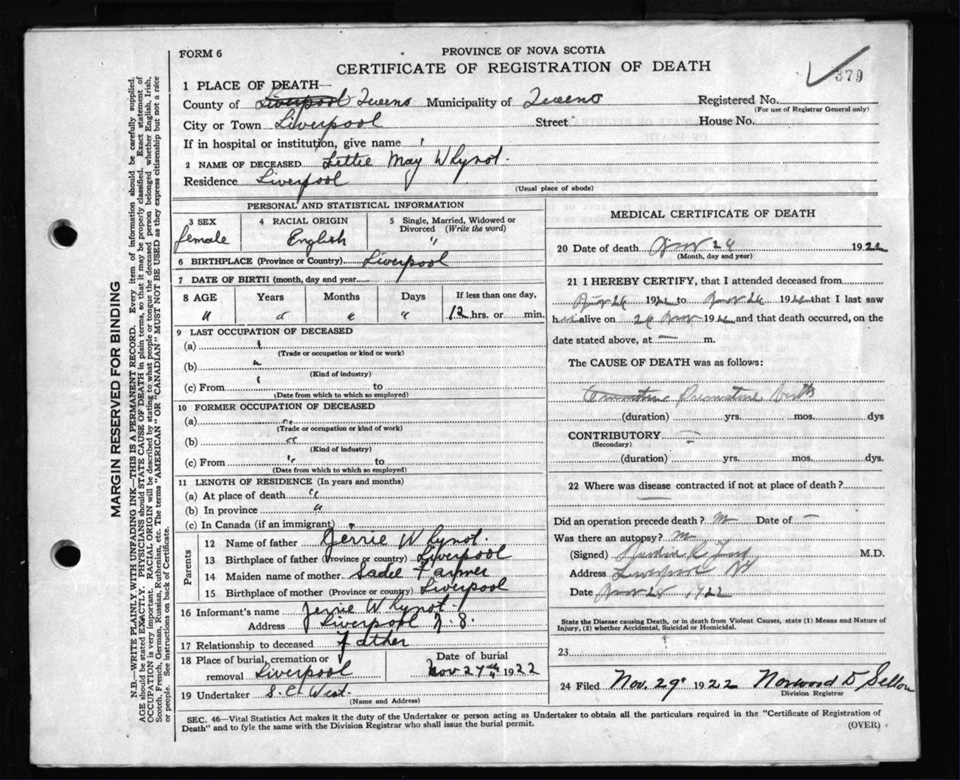 FORM 6
PROVINCE OF NOVA SCOTIA
CERTIFICATE OF REGISTRATION OF DEATH
379
1 PLACE OF DEATH—
County of Liverpool Queens Municipality of Queens Registered No.
(For use of Registrar General only)
City or Town Liverpool Street House No.
If in hospital or institution, give name "
2 NAME OF DECEASED Lettie May Whynot.
Residence Liverpool
(Usual place of abode)
PERSONAL AND STATISTICAL INFORMATION
3 SEX
female
4 RACIAL ORIGIN
English
5 Single, Married, Widowed or Divorced (Write the word)
"
6 BIRTHPLACE (Province or Country) Liverpool
7 DATE OF BIRTH (month, day and year
8 AGE Years Months Days If less than one day,
" " " " 12 hrs. or min.
9 LAST OCCUPATION OF DECEASED
(a) "
(Trade or occupation or kind or work)
(b) "
(Kind of industry)
(c) From " to
(Date from which to which so employed)
10 FORMER OCCUPATION OF DECEASED
(a) "
(Trade or occupation or kind of work)
(b) "
(Kind of industry)
(c) From " to
(Date from which to which so employed)
11 LENGTH OF RESIDENCE (In years and months)
(a) At place of death "
(b) In province "
(c) In Canada (if an immigrant) "
Parents
12 Name of father Jerrie Whynot.
13 Birthplace of father (Province or country) Liverpool
14 Maiden name of mother Sadie Farmer
15 Birthplace of mother (Province or country) Liverpool
16 Informant's name Jerrie Whynot.
Address Liverpool N.S.
17 Relationship to deceased Father
18 Place of burial, cremation or removal Liverpool
Date of burial
Nov 27th 1922
19 Undertaker S. C. West.
(Name and Address)
MEDICAL CERTIFICATE OF DEATH
20 Date of death Nov 1922
(Month, day and year)
21 I HEREBY CERTIFY, that I attended deceased from
Nov 26 1922 to Nov 26 1922 that I last saw
h alive on 26 Nov 1922 and that death occurred, on the
date stated above, at — m.
The CAUSE OF DEATH was as follows:
Premature Birth
(duration) yrs. mos. dys
CONTRIBUTORY —
(Secondary)
(duration) yrs. mos. dys.
22 Where was disease contracted if not at place of death?
—
Did an operation precede death? No Date of —
Was there an autopsy? No
(Signed) M.D.
Address Liverpool NS
Date Nov 28 1922
State the Disease causing Death, or in death from Violent Causes, state (1) Means and Nature of Injury, (2) whether Accidental, Suicidal or Homicidal.
23
24 Filed Nov. 29 1922 Norwood D Sellon
Division Registrar
SEC. 46—Vital Statistics Act makes it the duty of the Undertaker or person acting as Undertaker to obtain all the particulars required in the "Certificate of Registration of
Death" and to fyle the same with the Division Registrar who shall issue the burial permit.
(OVER)
MARGIN RESERVED FOR BINDING
N.B.—WRITE PLAINLY, WITH UNFADING INK—THIS IS A PERMANENT RECORD. Every item of information should be carefully supplied.
AGE should be stated EXACTLY. PHYSICIANS should STATE CAUSE OF DEATH in plain terms, so that it may be properly classified. Exact statement of
OCCUPATION is very important. RACIAL ORIGIN will be described by stating to what people or tongue the deceased person belonged whether English, Irish,
Scotch, French, German, Russian, Ruthenian, etc. The terms "AMERICAN" OR "CANADIAN" MUST NOT BE USED as they express citizenship but not a race
or people. See instructions on back of Certificate.